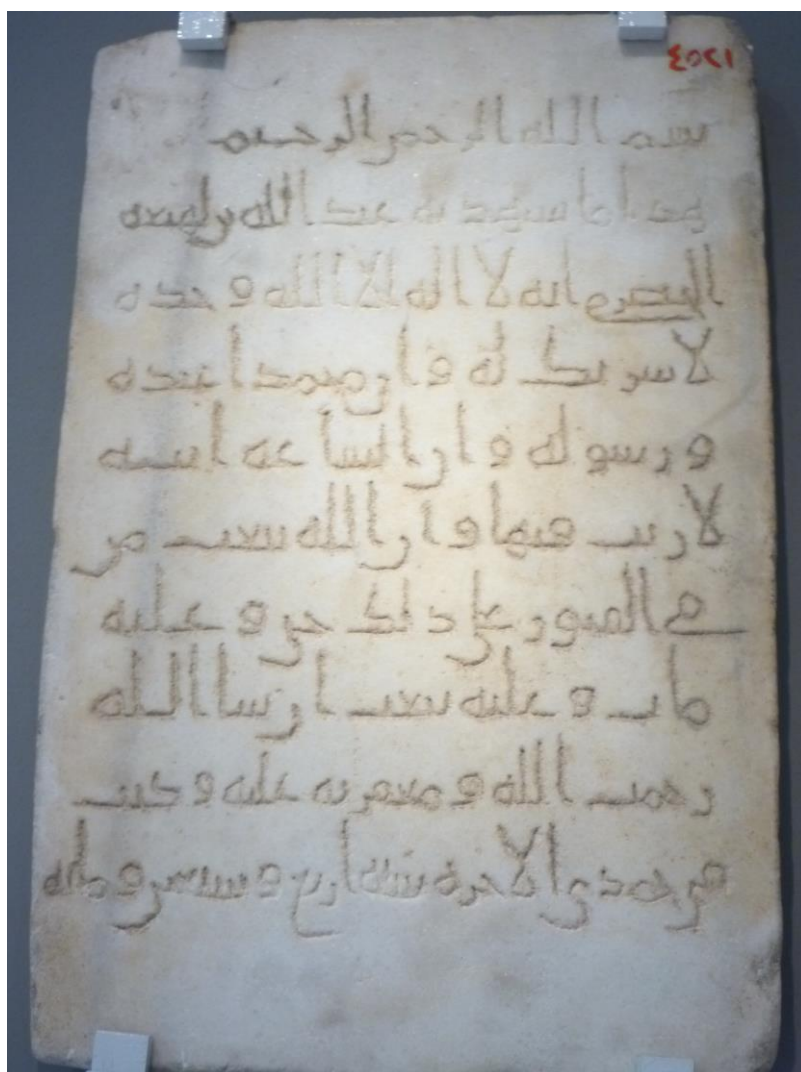 ٤٥٢١
بسم الله الرحمن الرحيم
هذا ما يشهد به عبد الله بن لهيعه
الحضرمي انه لا اله الا الله وحده
لا شريك له وان محمدا عبده
ورسوله وان الساعه اتيه
لا ريب فيها وان الله يبعث من
في القبور على ذلك حيى وعليه
مات وعليه يبعث ان شا الله
رحمت الله ومغفرته عليه وكتب
في جمدى الاخره سنه اربع وسبعين ومائه